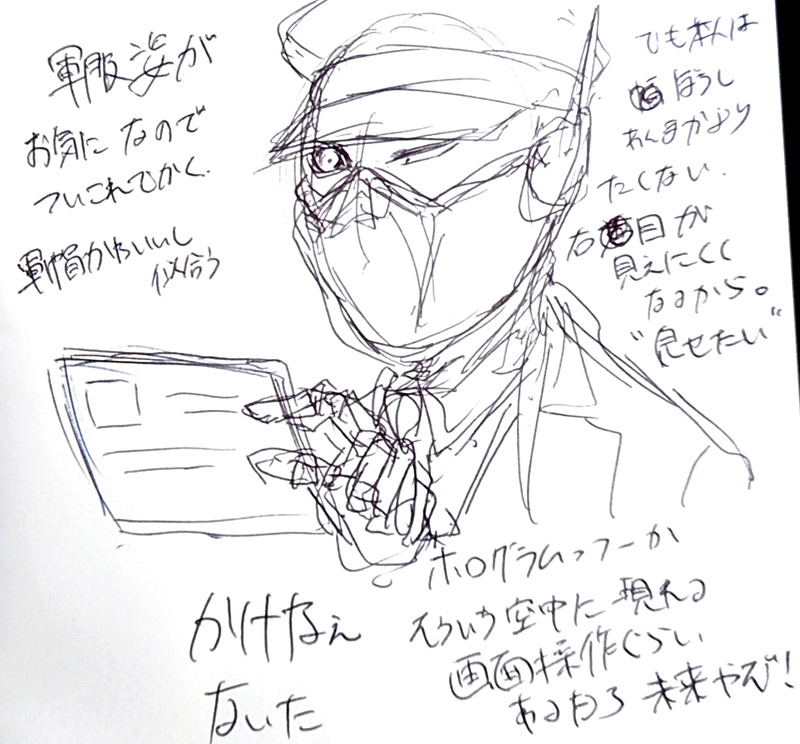 軍服姿が
お気に なので
ついこれでかく.
軍帽かわいいし
似合う
でも本人は
ぼうし
あんまかぶり
たくない.
右目が
見えにくく
なるから。
"見せたい"
ホログラムっつーか
そういう空中に現れる
画面操作くらい
あるだろ 未来やぞ!
かけなぇ
ないた